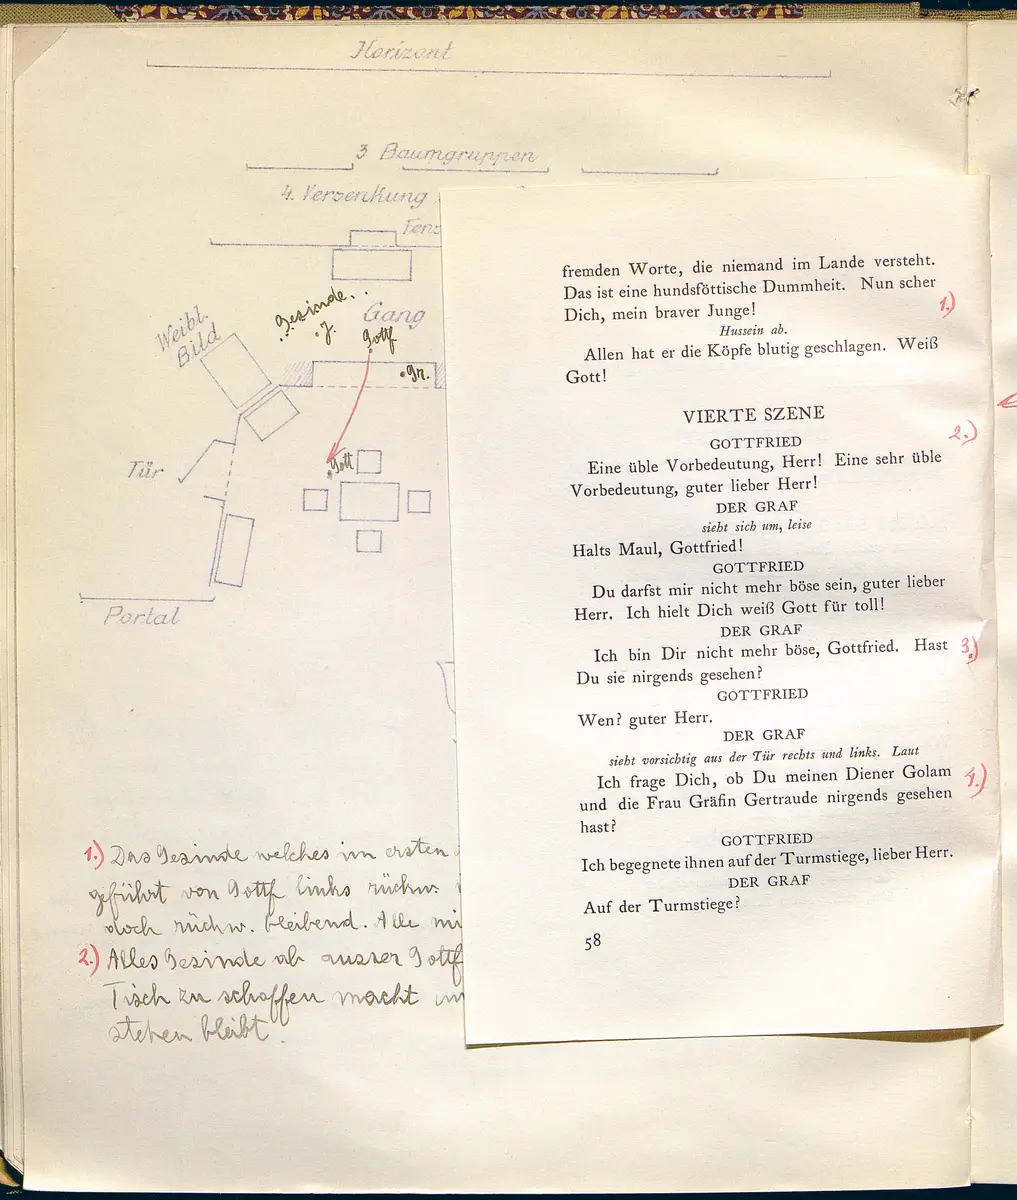 Horizont
3 Baumgruppen
4. Versenkung
Fens
Gesinde.
J.
Gang
Gottf
Weibl.
Bild
Gr.
Gott
Tür
Portal
fremden Worte, die niemand im Lande versteht.
Das ist eine hundsföttische Dummheit. Nun scher
Dich, mein braver Junge!
1.)
Hussein ab.
Allen hat er die Köpfe blutig geschlagen. Weiß
Gott!
VIERTE SZENE
2.)
GOTTFRIED
Eine üble Vorbedeutung, Herr! Eine sehr üble
Vorbedeutung, guter lieber Herr!
DER GRAF
sieht sich um, leise
Halts Maul, Gottfried!
GOTTFRIED
Du darfst mir nicht mehr böse sein, guter lieber
Herr. Ich hielt Dich weiß Gott für toll!
DER GRAF
Ich bin Dir nicht mehr böse, Gottfried. Hast
3.)
Du sie nirgends gesehen?
GOTTFRIED
Wen? guter Herr.
DER GRAF
sieht vorsichtig aus der Tür rechts und links. Laut
Ich frage Dich, ob Du meinen Diener Golam
4.)
und die Frau Gräfin Gertraude nirgends gesehen
hast?
GOTTFRIED
Ich begegnete ihnen auf der Turmstiege, lieber Herr.
DER GRAF
Auf der Turmstiege?
58
1.) Das Gesinde welches im ersten
geführt von Gottf links rückw.
doch rückw. bleibend. Alle mi
2.) Alles Gesinde ab ausser Gottf
Tisch zu schaffen macht un
stehen bleibt.